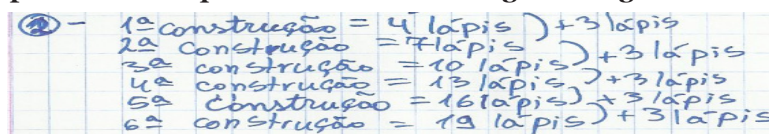 ② - 1ª construção = 4 lápis ) + 3 lápis
2ª construção = 7 lápis ) + 3 lápis
3ª construção = 10 lápis ) + 3 lápis
4ª construção = 13 lápis ) + 3 lápis
5ª construção = 16 lápis ) + 3 lápis
6ª construção = 19 lápis